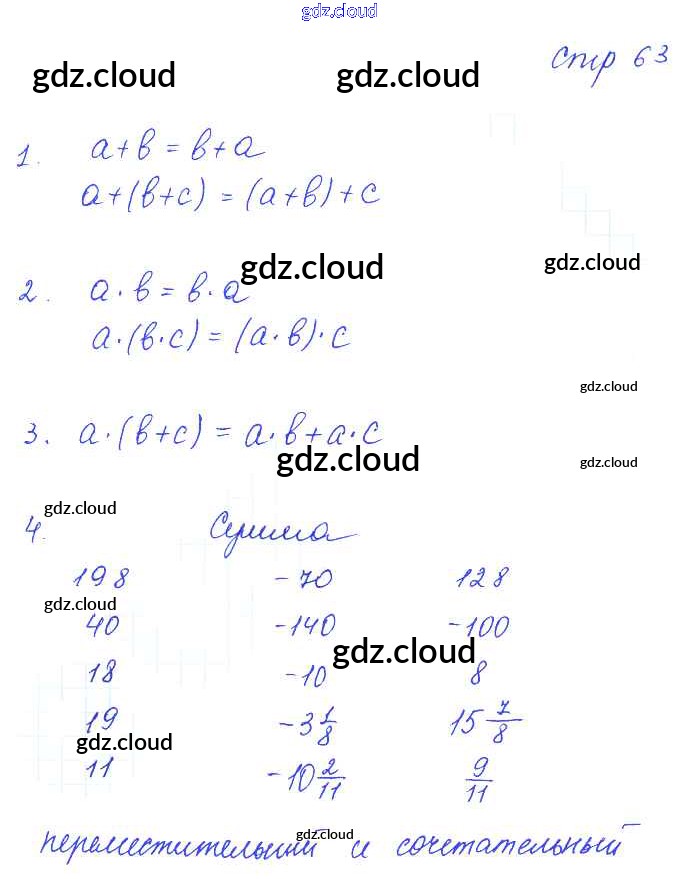 gdz.cloud
Стр 63
gdz.cloud gdz.cloud
1. a+в=в+a
a+(в+c)=(a+в)+c
gdz.cloud gdz.cloud
2. a·в=в·a
a·(в·c)=(a·в)·c
gdz.cloud
3. a·(в+c)=a·в+a·c
gdz.cloud gdz.cloud
gdz.cloud
4. Сумма
198 -70 128
gdz.cloud
40 -140 -100
gdz.cloud
18 -10 8
19 -3 1/8 15 7/8
gdz.cloud
11 -10 2/11 9/11
gdz.cloud
переместительный и сочетательный